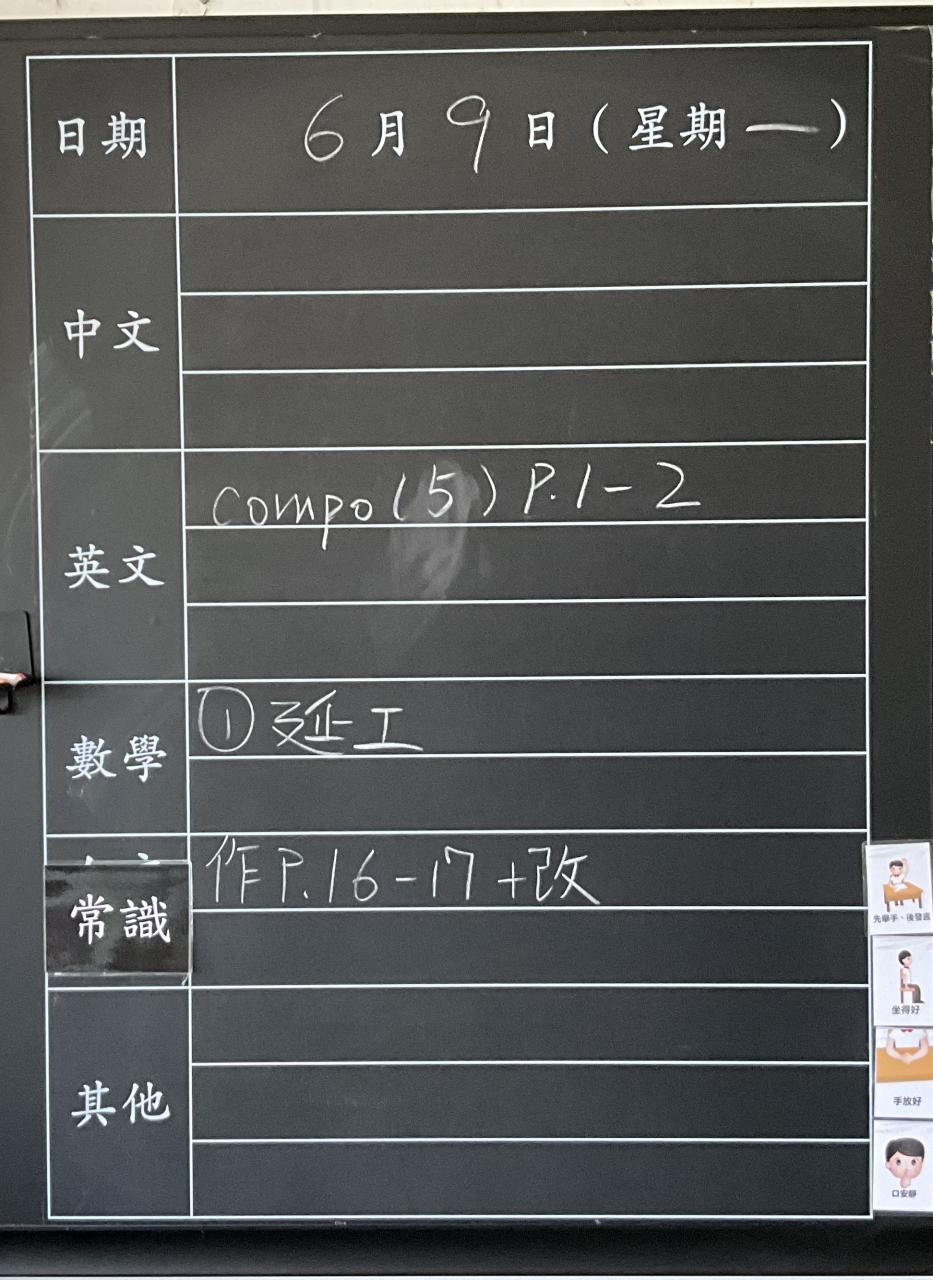 日期 6月9日(星期一)
中文
英文 compo(5) P.1-2
數學 ① 延工
常識 作P.16-17+改
其他
先舉手、後發言
坐得好
手放好
口安靜